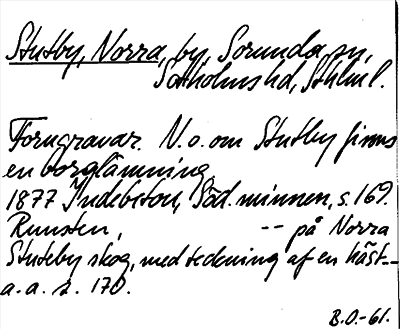 Stutby, Norra, by, Sorunda sn,
Sotholms hd, Sthlm l.
Forngravar. N.o. om Stutby finns
en borglämning
1877 Indebetou, Söd. minnen, s. 169.
Runsten, -- på Norra
Stuteby skog, med teckning af en häst--
a. a. s. 170.
B.O.-61.